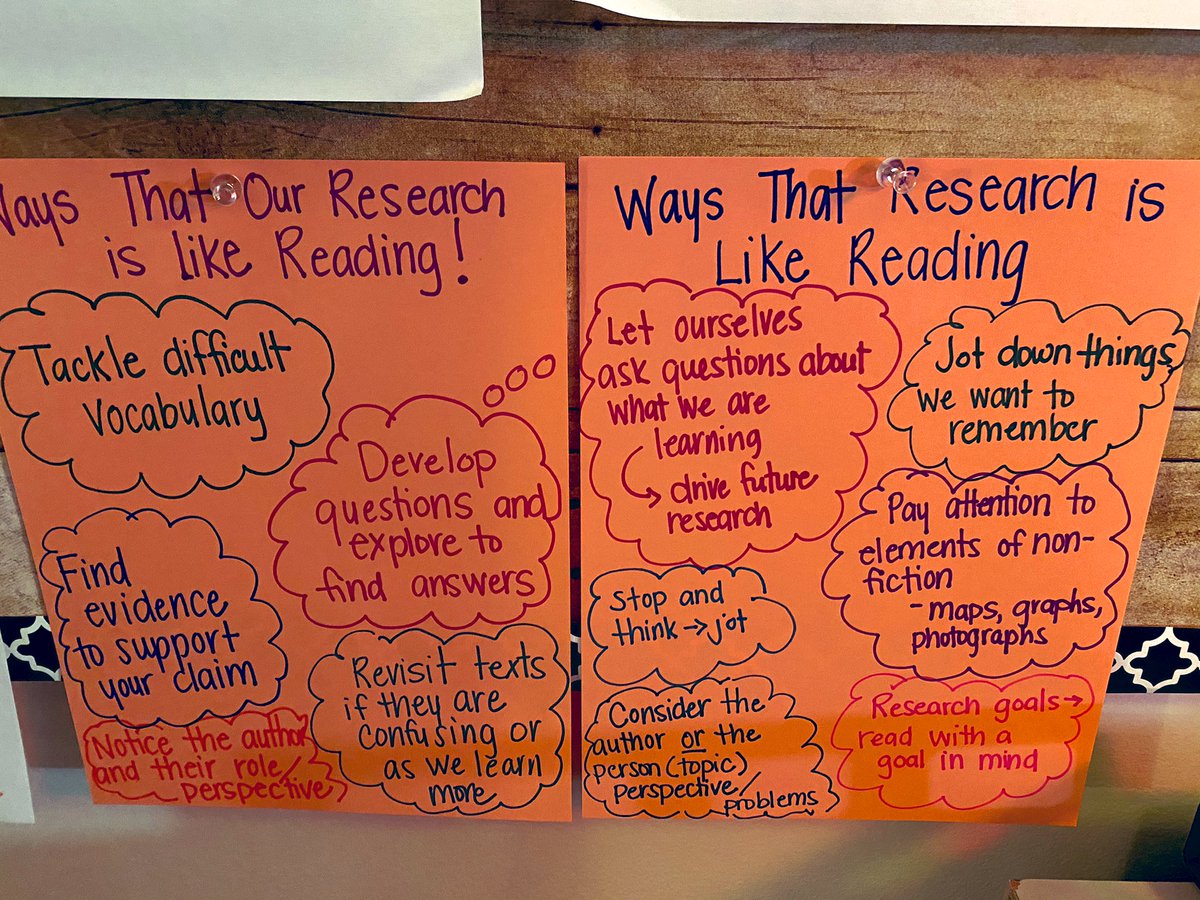 Ways That Our Research
is like Reading!
Tackle difficult
vocabulary
Develop
questions and
explore to
find answers
Find
evidence
to support
your claim
Revisit texts
if they are
confusing or
as we learn
more
Notice the author
and their role/
perspective
Ways That Research is
Like Reading
Let ourselves
ask questions about
what we are
learning
→ drive future
research
Jot down things
we want to
remember
Pay attention to
elements of non-
fiction
- maps, graphs,
photographs
Stop and
think → jot
Consider the
author or the
person (topic)
perspective/
problems
Research goals →
read with a
goal in mind